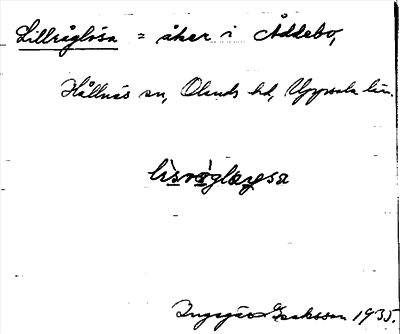 Lillråglösa = åker i Åddebo,
Hållnäs sn, Olands hd, Uppsala län.
Ingegärd Isaksson 1935.